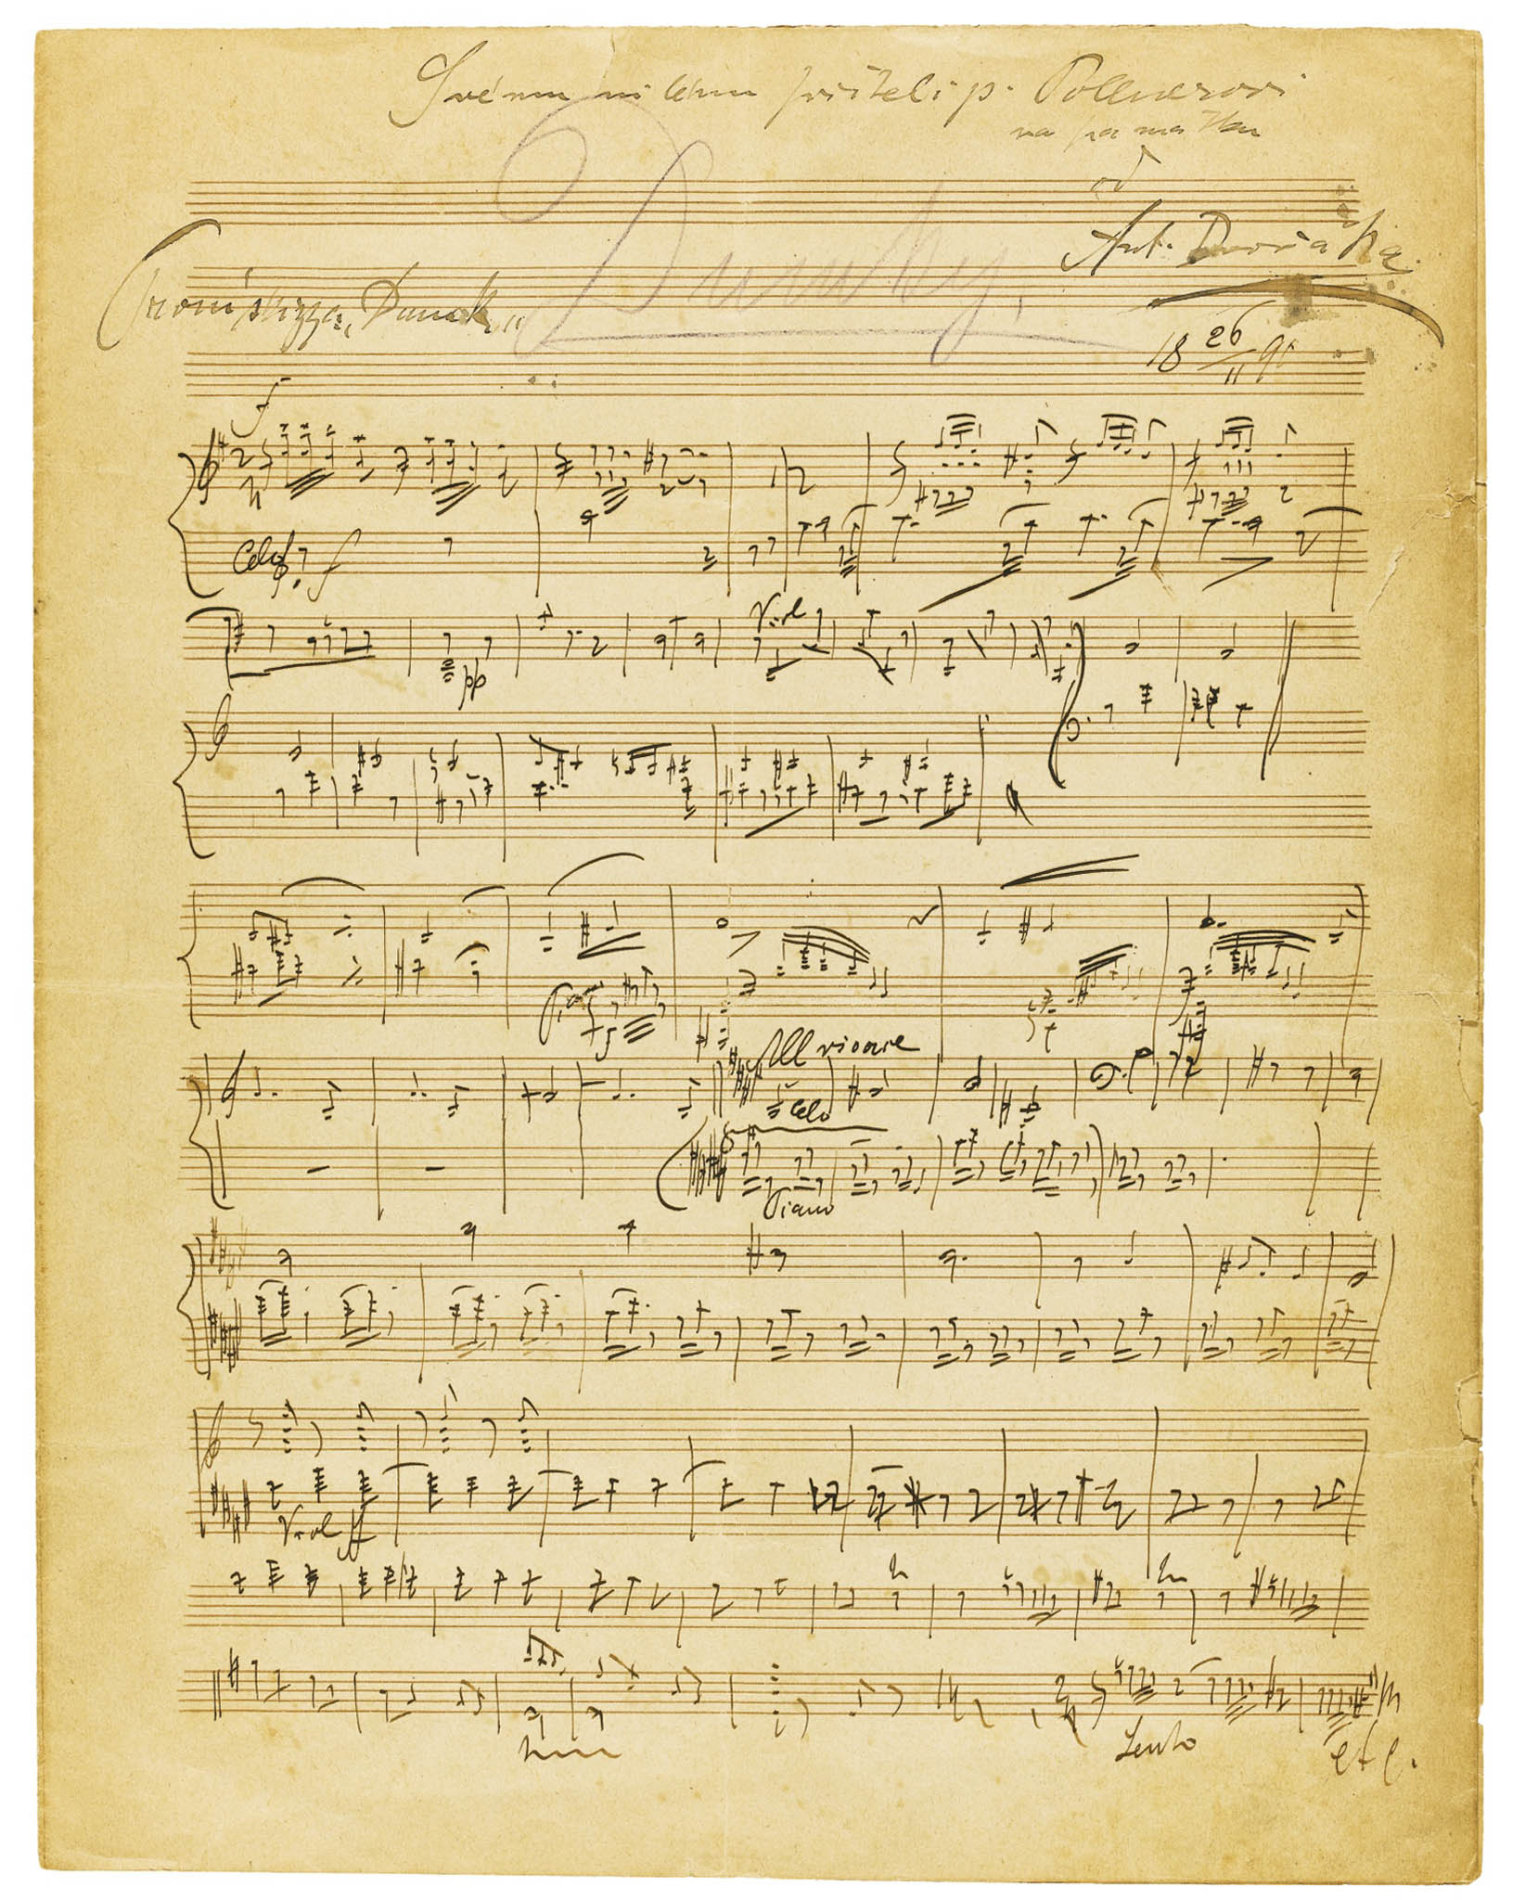 Svému milému příteli p. Pollnerovi
na památku
od
Ant. Dvořáka
První skizza „Dumek“
Dumky,
18 26/11 90
f
Celo f
Viol
pp
Pia
All vivace
Celo
Piano
Viol ff
Lento
etc.